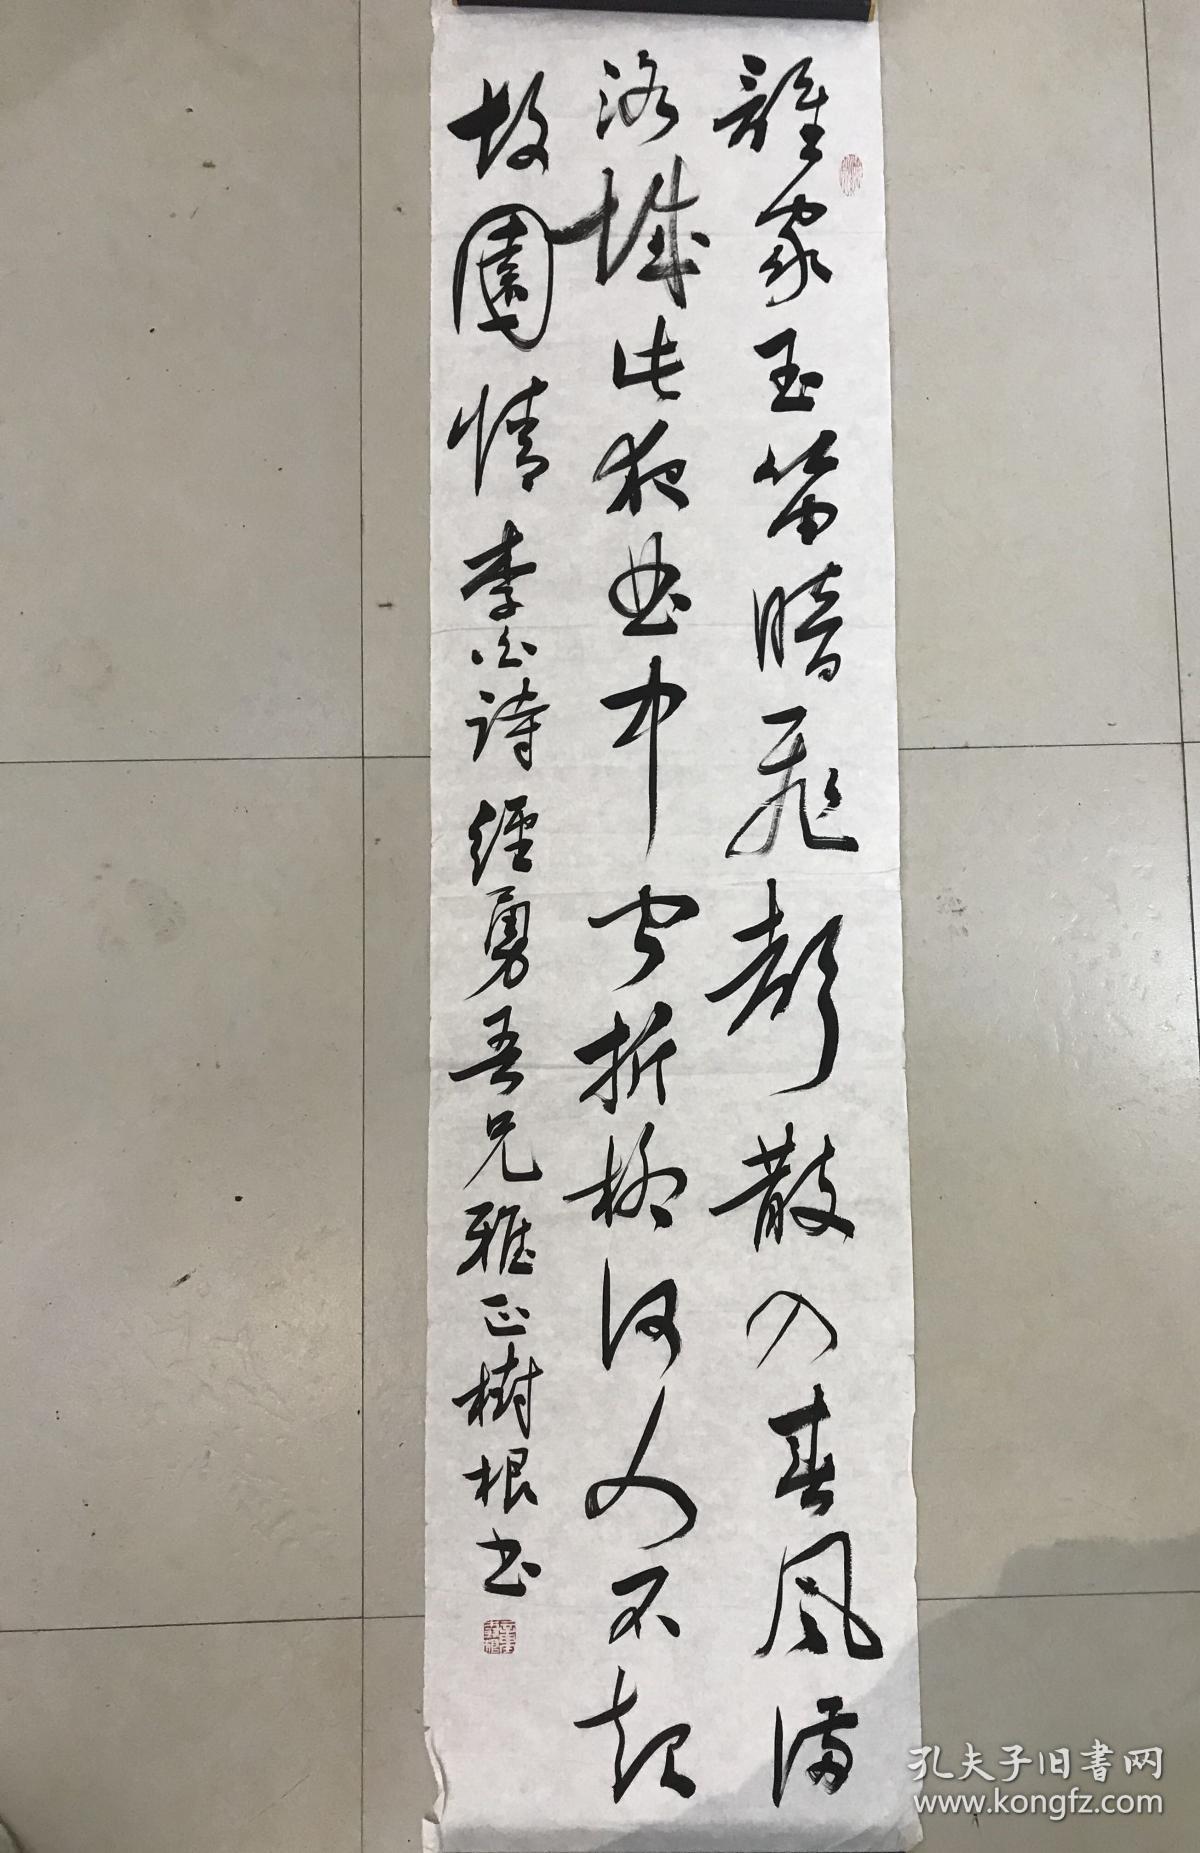 誰家玉笛暗飛聲散入春風滿
洛城此夜曲中聞折柳何人不起
故園情李白詩經勇吾兄雅正樹根书
孔夫子旧書网
www.kongfz.com